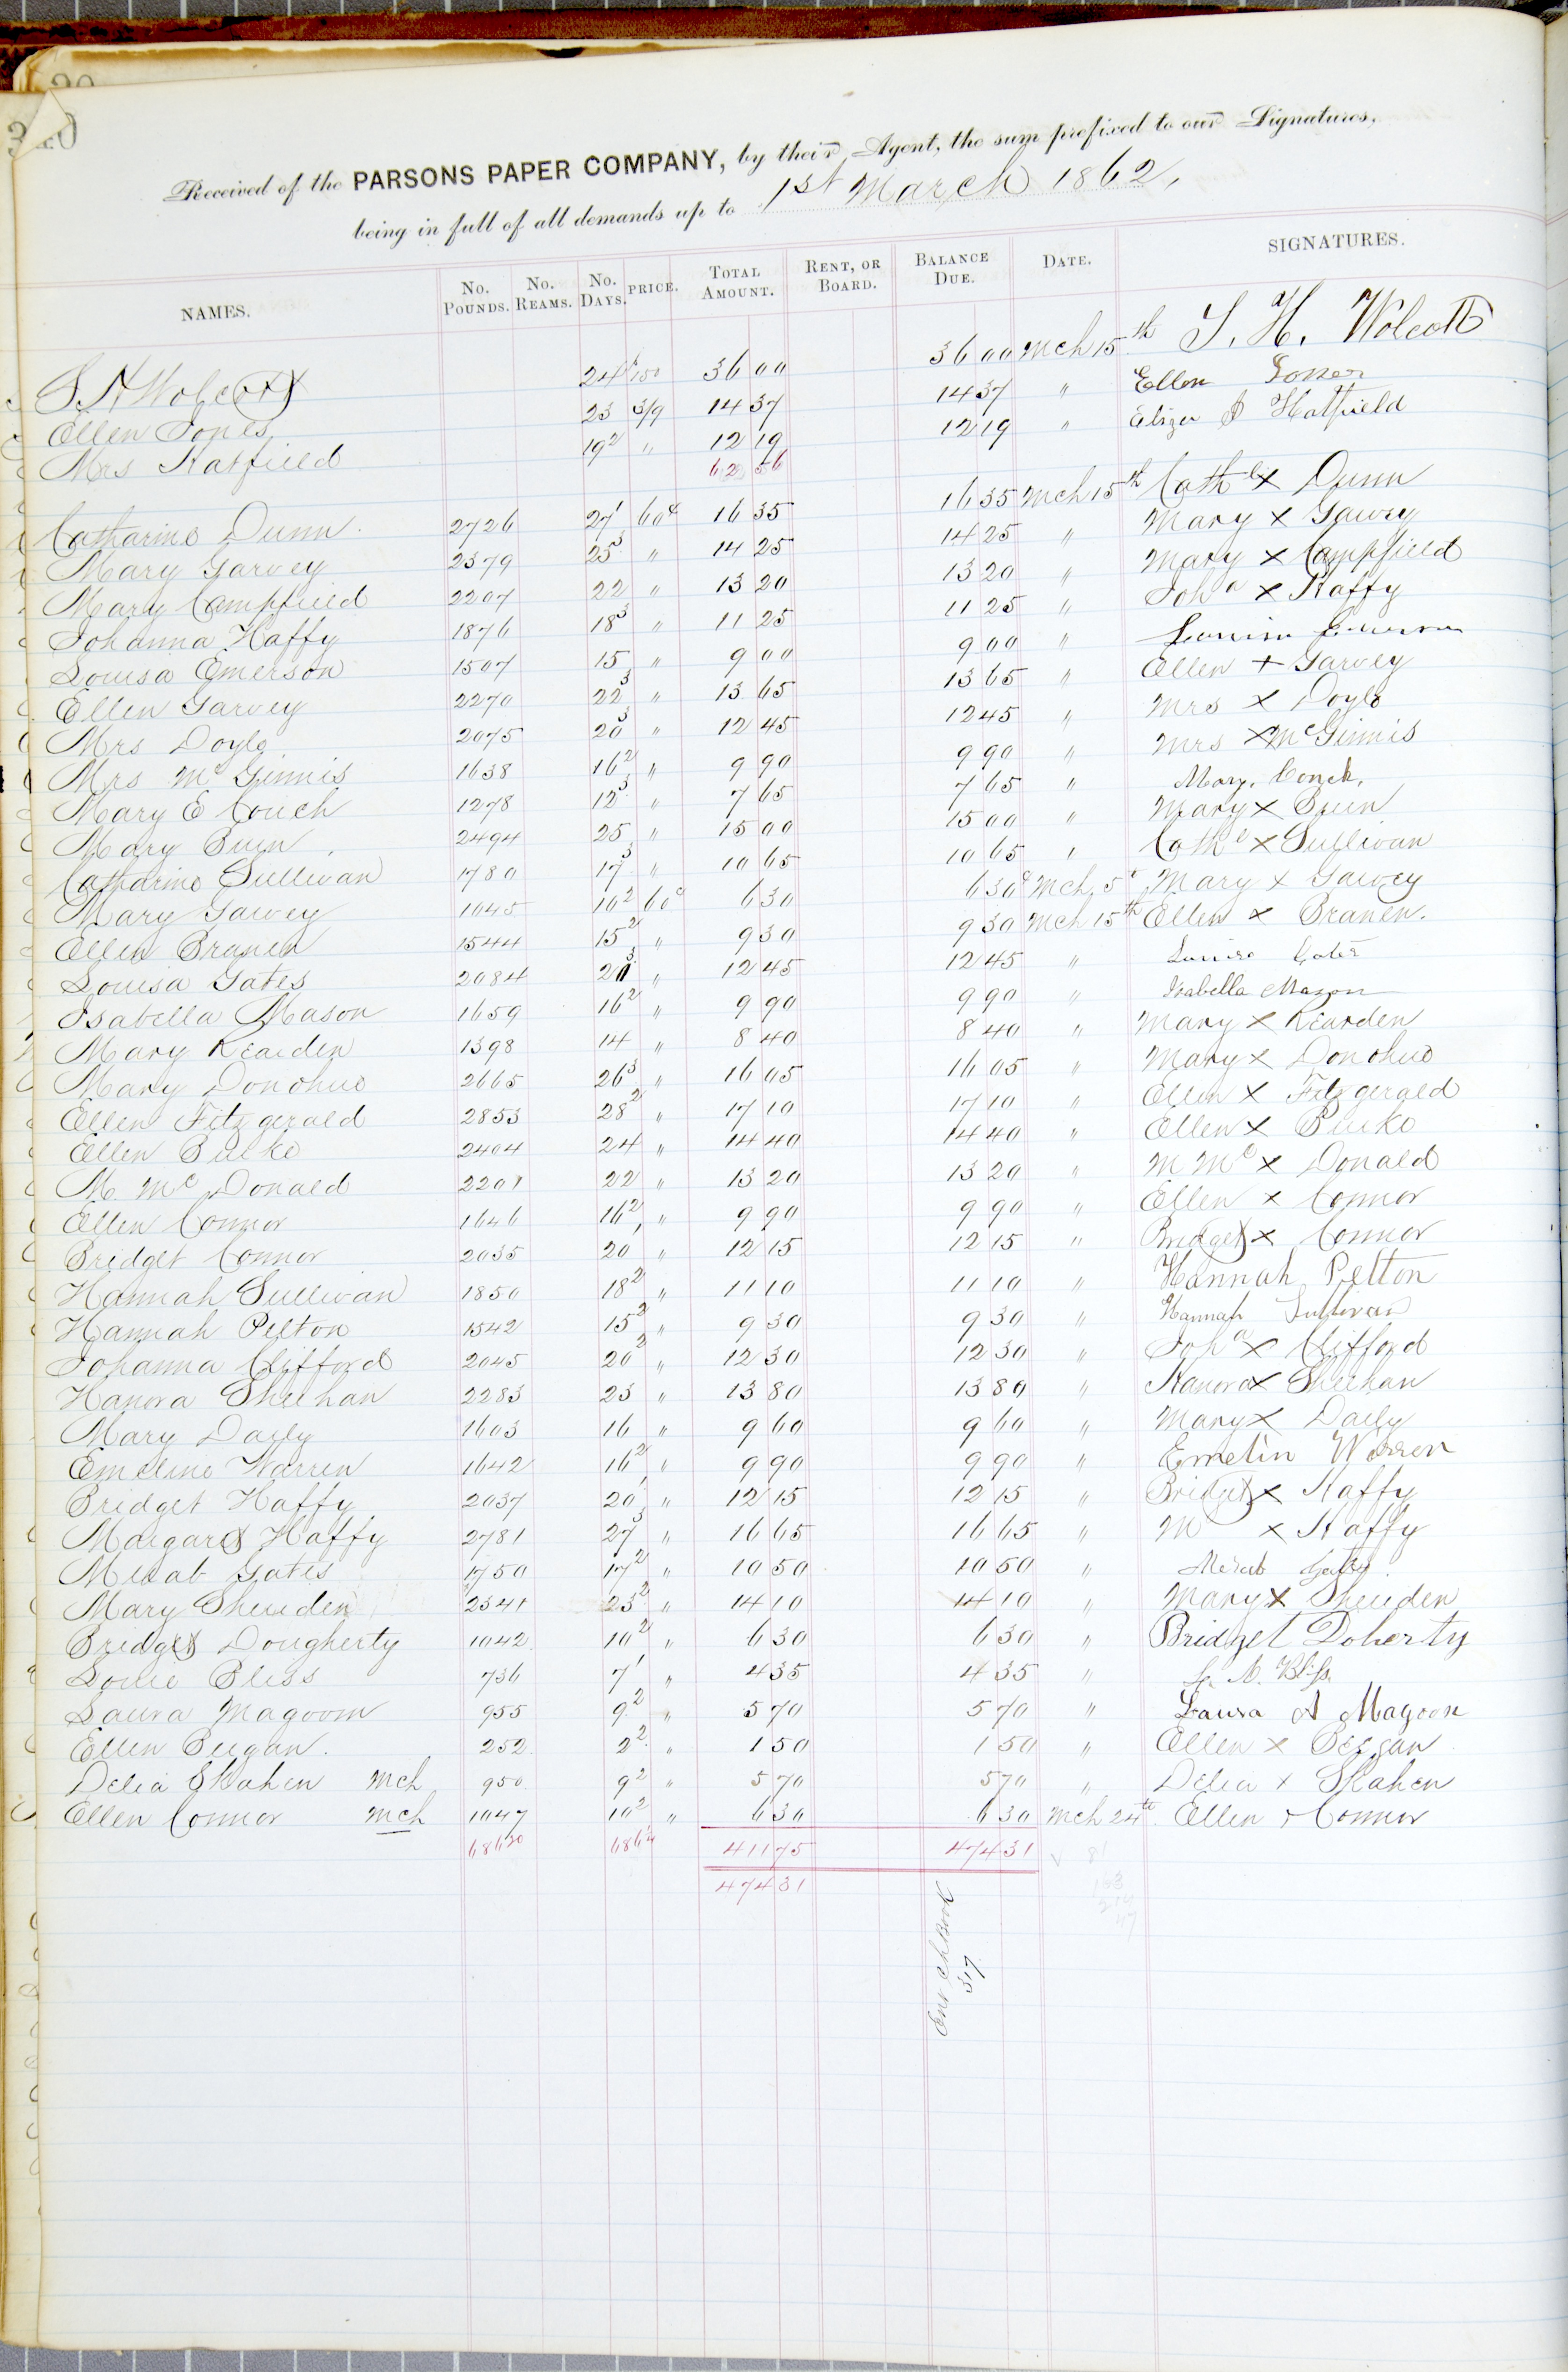 340
Received of the PARSONS PAPER COMPANY, by their Agent, the sum prefixed to our Signatures,
being in full of all demands up to 1st March 1862,
NAMES. No. Pounds. No. Reams. No. Days. PRICE. Total Amount. Rent, or Board. Balance Due. Date. SIGNATURES.
S H Wolcott 24 150 36 00 36 00 Mch 15th S. H. Wolcott
Ellen Jones 23 3/9 14 37 14 37 " Ellen Jones
Mrs Hatfield 19 2 " 12 19 12 19 " Eliza J Hatfield
62 56
Catharine Dunn. 2726 27 1 60c 16 35 16 35 Mch 15th Cath e x Dunn
Mary Garvey 2379 25 3 " 14 25 14 25 " Mary x Garvey
Mary Campfield 2207 22 " 13 20 13 20 " Mary x Campfield
Johanna Haffy 1876 18 3 " 11 25 11 25 " Joh a x Haffy
Louisa Emerson 1507 15 " 9 00 9 00 " Louisa Emerson
Ellen Garvey 2270 22 3 " 13 65 13 65 " Ellen + Garvey
Mrs Doyle 2075 20 3 " 12 45 12 45 " Mrs x Doyle
Mrs McGinnis 1638 16 2 " 9 90 9 90 " Mrs x McGinnis
Mary E Couch 1278 12 3 " 7 65 7 65 " Mary. Couch.
Mary 2494 25 " 15 00 15 00 " Mary x
Catharine Sullivan 1780 17 3 " 10 65 10 65 " Cath e x Sullivan
Mary Garvey 1045 10 2 60c 6 30 6 30 Mch 5 Mary x Garvey
Ellen Branen 1544 15 2 " 9 30 9 30 Mch 15th Ellen x Branen.
Louisa Gates 2084 3 " 12 45 12 45 " Louisa Gates
Isabella Mason 1659 16 2 " 9 90 9 90 " Isabella Mason
Mary Rearden 1398 14 " 8 40 8 40 " Mary x Rearden
Mary Donohue 2665 26 3 " 16 05 16 05 " Mary x Donohue
Ellen Fitzgerald 2853 28 2 " 17 10 17 10 " Ellen x Fitzgerald
Ellen Burke 2404 24 " 14 40 14 40 " Ellen x Burke
M. McDonald 2201 22 " 13 20 13 20 " M Mc x Donald
Ellen Connor 1646 16 2 " 9 90 9 90 " Ellen x Connor
Bridget Connor 2035 20 1 " 12 15 12 15 " Bridget x Connor
Hannah Sullivan 1850 18 2 " 11 10 11 10 " Hannah Pelton
Hannah Pelton 1542 15 2 " 9 30 9 30 " Hannah Sullivan
Johanna Clifford 2045 20 2 " 12 30 12 30 " Joh a x Clifford
Hanora Sheehan 2283 23 " 13 80 13 80 " Hanora x Sheehan
Mary Daily 1603 16 " 9 60 9 60 " Mary x Daily
Emeline Warren 1642 16 2 " 9 90 9 90 " Emelin Warren
Bridget Haffy 2037 20 1 " 12 15 12 15 " Bridget x Haffy
Margaret Haffy 2781 27 3 " 16 65 16 65 " M x Haffy
Merab Gates 1750 17 2 " 10 50 10 50 " Merab Gates.
Mary Sheriden 2341 23 2 " 14 10 14 10 " Mary x Sheriden
Bridget Dougherty 1042 10 2 " 6 30 6 30 " Bridget Doherty
Bliss 736 7 1 " 4 35 4 35 " Bliss
Laura Magoom 955 9 2 " 5 70 5 70 " Laura A Magoon
Ellen Beegan. 252 2 2 " 1 50 1 50 " Ellen x Beegan
Delia Skahen Mch 950 9 2 " 5 70 5 70 " Delia x Skahen
Ellen Connor Mch 1047 10 2 " 6 30 6 30 Mch 24th Ellen x Connor
68620 686 411 75 474 31
474 31
Ent Ch Book
317